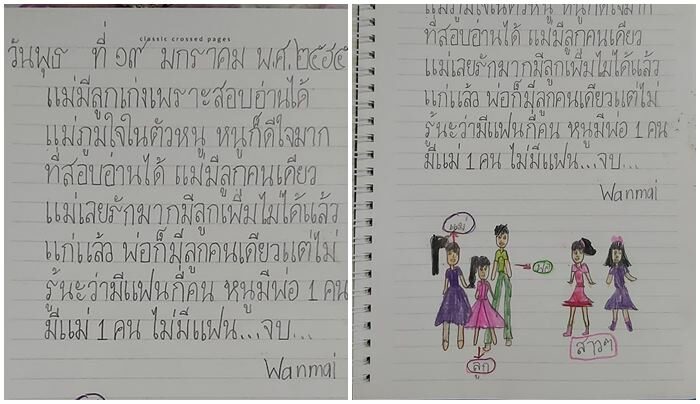 classic crossed pages
วันพุธ ที่ ๑๙ มกราคม พ.ศ.๒๕๖๕
แม่มีลูกเก่งเพราะสอบอ่านได้
แม่ภูมใจในตัวหนู หนูก็ดีใจมาก
ที่สอบอ่านได้ แม่มีลูกคนเดียว
แม่เลยรักมากมีลูกเพิ่มไม่ได้แล้ว
แก่แล้ว พ่อก็มีลูกคนเดียวแต่ไม่
รู้นะว่ามีแฟนกี่คน หนูมีพ่อ 1 คน
มีแม่ 1 คน ไม่มีแฟน...จบ...
Wanmai
แม่ภูมใจในตัวหนู หนูก็ดีใจมาก
ที่สอบอ่านได้ แม่มีลูกคนเดียว
แม่เลยรักมากมีลูกเพิ่มไม่ได้แล้ว
แก่แล้ว พ่อก็มีลูกคนเดียวแต่ไม่
รู้นะว่ามีแฟนกี่คน หนูมีพ่อ 1 คน
มีแม่ 1 คน ไม่มีแฟน...จบ...
Wanmai
แม่
พ่อ
ลูก
สาวๆ